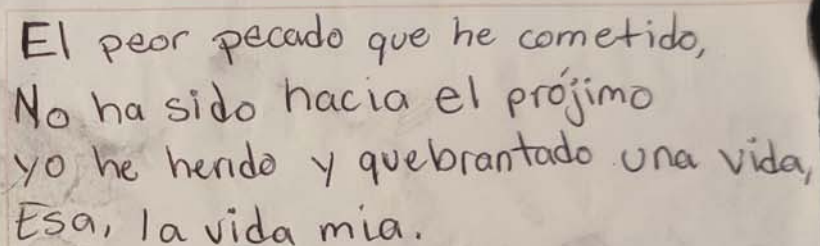 El peor pecado que he cometido,
No ha sido hacia el prójimo
yo he herido y quebrantado una vida,
Esa, la vida mia.